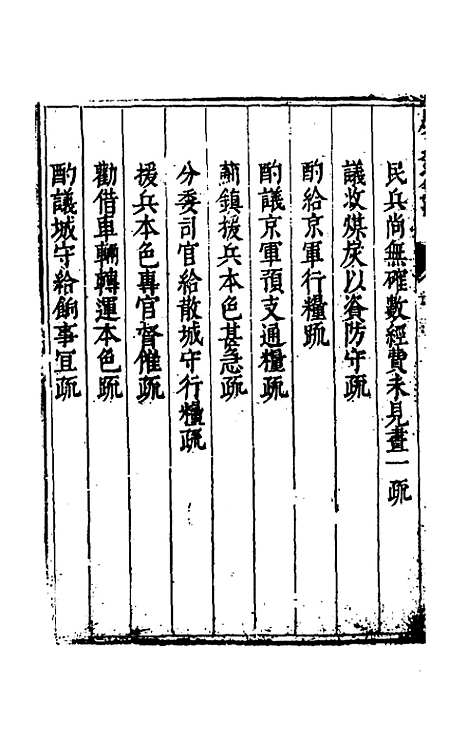 民兵尚無確數經費未見畫一疏
議收煤炭以資防守疏
酌給京軍行糧疏
酌議京軍預支通糧疏
薊鎮援兵本色甚急疏
分委司官給散城守行糧疏
援兵本色專官督催疏
勸借車輛轉運本色疏
酌議城守給餉事宜疏